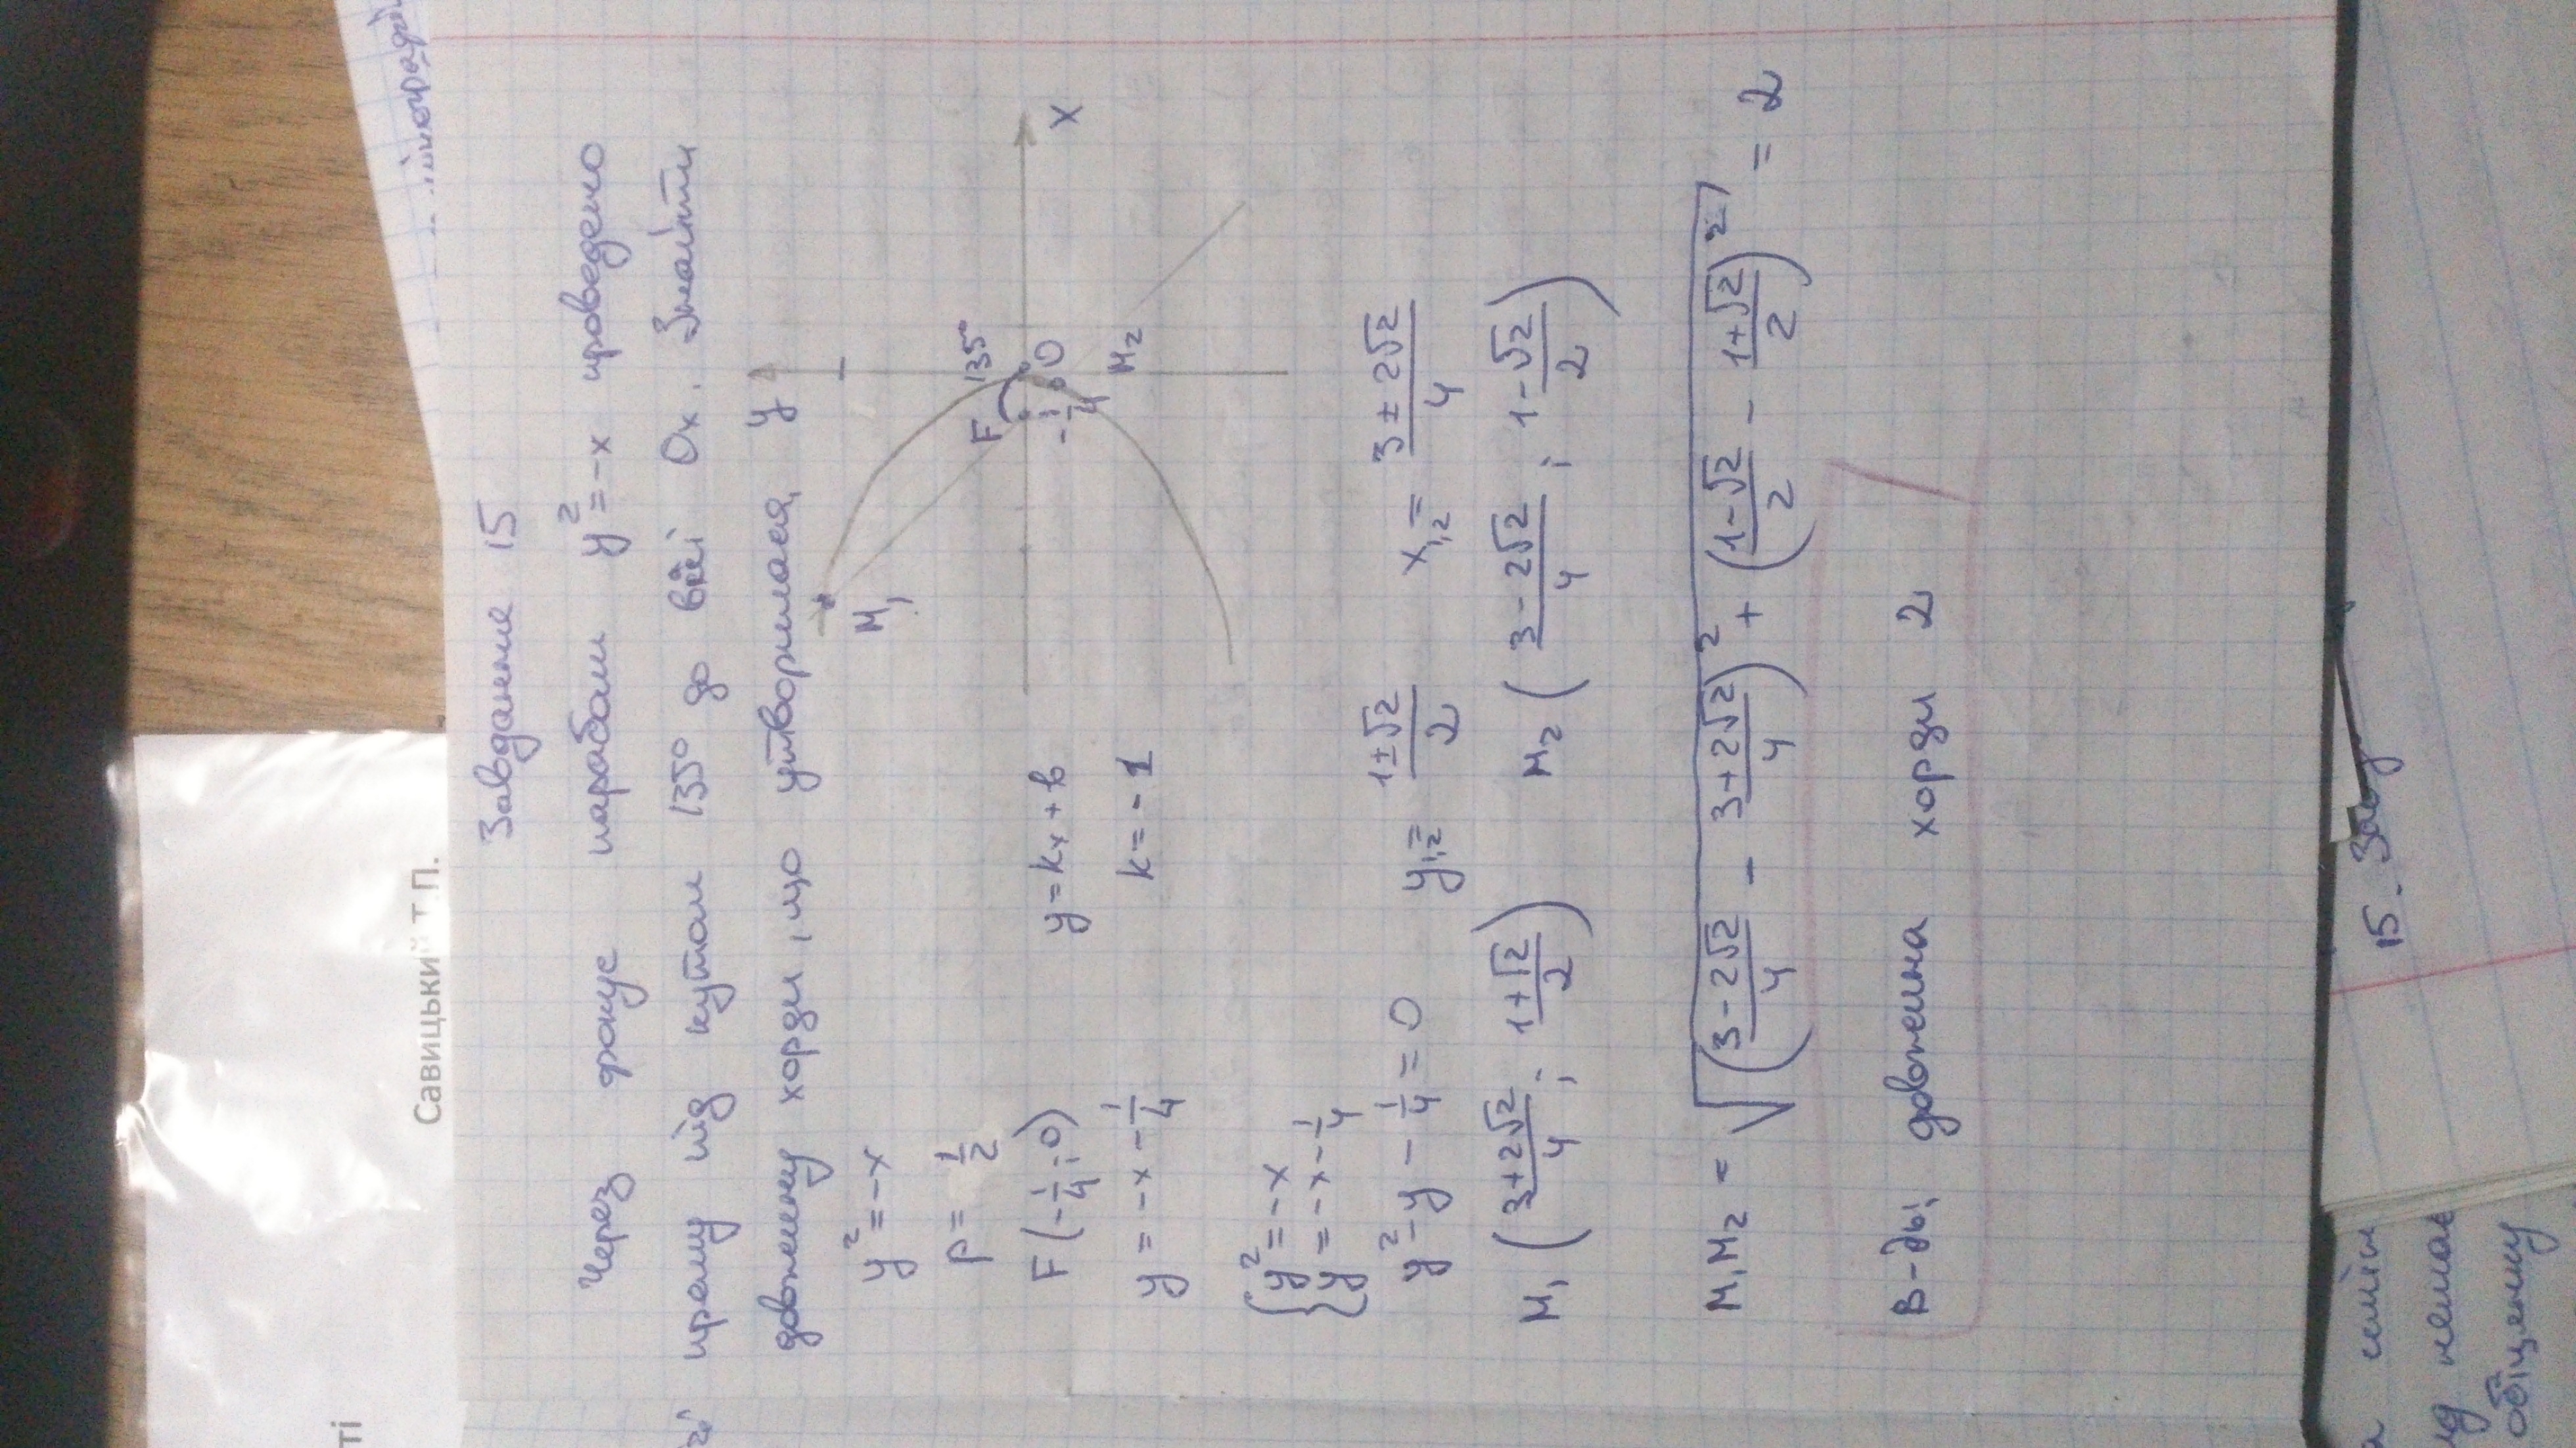 ті
Савицький Т.П.
Завдання 15
Через фокус параболи y²=-x проведено
пряму під кутом 135° до вісі Ox. Знайти
довжину хорди, що утворилася,
y
M₁
F
135°
-1/4
O
x
M₂
y²=-x
p= 1/2
F(-1/4;0) y=kx+b
y = -x-1/4 k=-1
{y²=-x
y=-x-1/4
y²-y-1/4=0 y₁,₂= (1±√2)/2 x₁,₂= (3±2√2)/4
M₁((3+2√2)/4; (1+√2)/2) M₂((3-2√2)/4; (1-√2)/2)
M₁M₂ = √(((3-2√2)/4 - (3+2√2)/4)² + ((1-√2)/2 - (1+√2)/2)²) = 2
В-дь: довжина хорди 2
15. Зав
немає
обіцянку